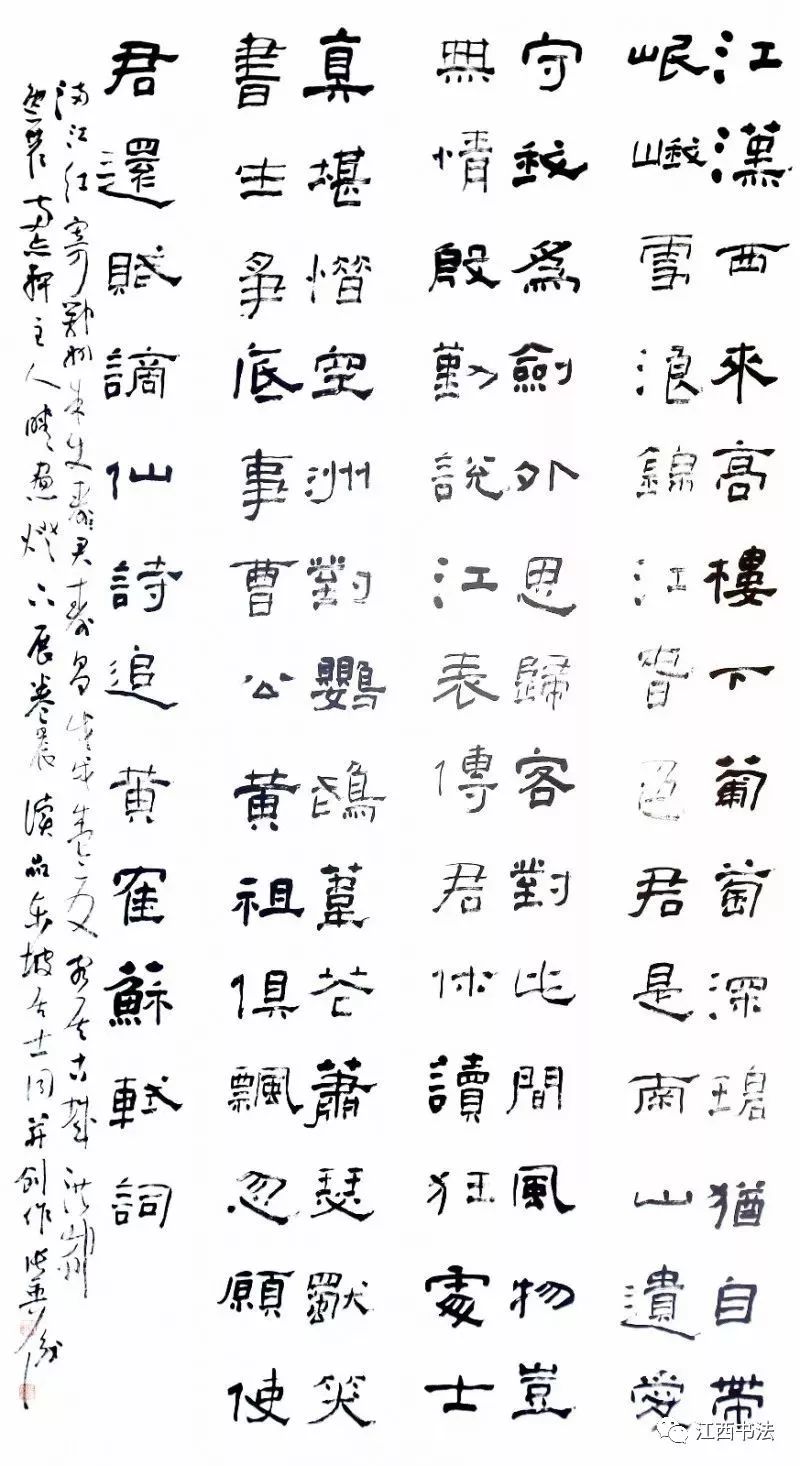 江漢西來高樓下葡萄深碧猶自帶
岷峨雪浪錦江春色君是南山遺愛
守我爲劍外思歸客對此間風物豈
無情殷勤說江表傳君休讀狂處士
真堪惜空洲對鸚鵡葦花蕭瑟獨笑
書生爭底事曹公黃祖俱飄忽願使
君還賦謫仙詩追黃寉蘇軾詞
滿江紅寄鄂州朱使君壽昌
主人 燈下展卷晨讀品東坡居士词并創作
江西书法